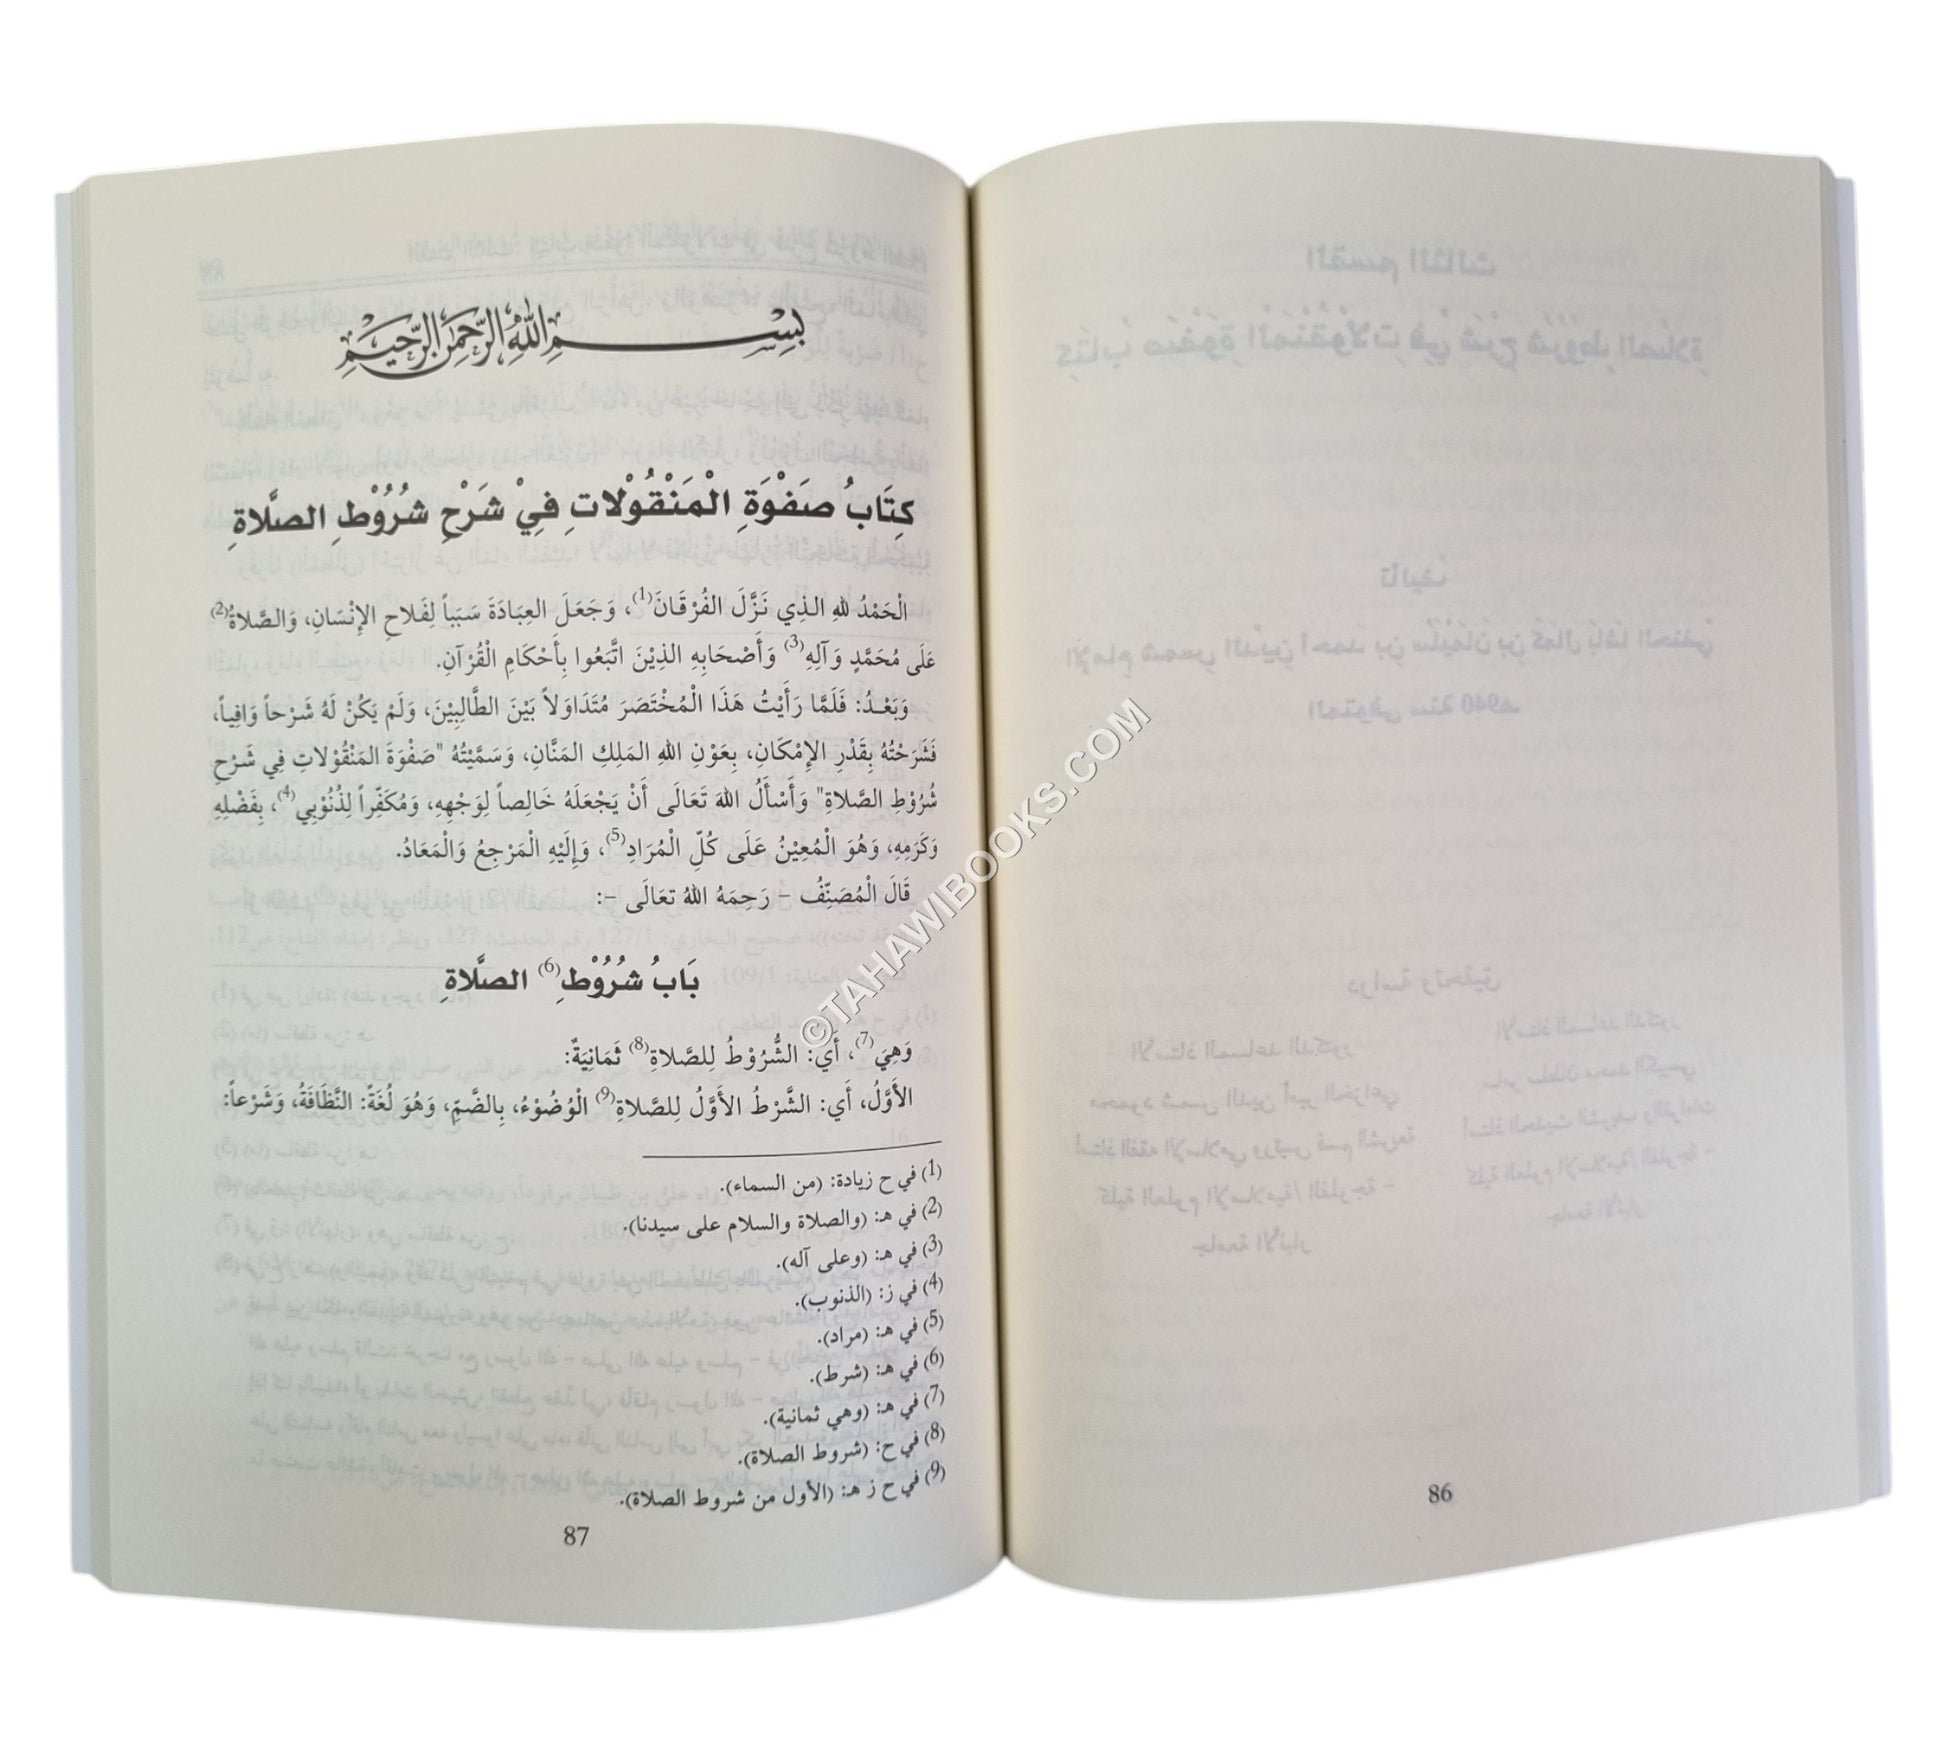 بِسْمِ اللهِ الرَّحْمَنِ الرَّحِيْمِ
كِتَابُ صَفْوَةِ الْمَنْقُوْلاتِ فِيْ شَرْحِ شُرُوْطِ الصَّلَاةِ
الْحَمْدُ للهِ الذِي نَزَّلَ الفُرْقَانَ(1)، وَجَعَلَ العِبَادَةَ سَبَباً لِفَلاحِ الإِنْسَانِ، وَالصَّلاةُ(2)
عَلَى مُحَمَّدٍ وَآلِهِ(3) وَأَصْحَابِهِ الذِيْنَ اتَّبَعُوا بِأَحْكَامِ الْقُرْآنِ.
وَبَعْدُ: فَلَمَّا رَأَيْتُ هَذَا الْمُخْتَصَرَ مُتَدَاوَلاً بَيْنَ الطَّالِبِيْنَ، وَلَمْ يَكُنْ لَهُ شَرْحاً وَافِياً،
فَشَرَحْتُهُ بِقَدْرِ الإِمْكَانِ، بِعَوْنِ اللهِ المَلِكِ المَنَّانِ، وَسَمَّيْتُهُ "صَفْوَةَ المَنْقُوْلاتِ فِي شَرْحِ
شُرُوْطِ الصَّلاةِ" وَأَسْأَلُ اللهَ تَعَالَى أَنْ يَجْعَلَهُ خَالِصاً لِوَجْهِهِ، وَمُكَفِّراً لِذُنُوْبِي(4)، بِفَضْلِهِ
وَكَرَمِهِ، وَهُوَ الْمُعِيْنُ عَلَى كُلِّ الْمُرَادِ(5)، وَإِلَيْهِ الْمَرْجِعُ وَالْمَعَادُ.
قَالَ الْمُصَنِّفُ – رَحِمَهُ اللهُ تعَالَى –:
بَابُ شُرُوْطِ(6) الصَّلَاةِ
وَهِيَ(7)، أَي: الشُّرُوْطُ لِلصَّلاةِ(8) ثَمَانِيَةٌ:
الأَوَّلُ، أَي: الشَّرْطُ الأَوَّلُ لِلصَّلاةِ(9) الْوُضُوْءُ، بِالضَّمِّ، وَهُوَ لُغَةً: النَّظَافَةُ، وَشَرْعاً:
(1) في ح زيادة: (من السماء).
(2) في هـ: (والصلاة والسلام على سيدنا).
(3) في هـ: (وعلى آله).
(4) في ز: (الذنوب).
(5) في هـ: (مراد).
(6) في هـ: (شرط).
(7) في هـ: (وهي ثمانية).
(8) في ح: (شروط الصلاة).
(9) في ح ز هـ: (الأول من شروط الصلاة).
87
86
©TAHAWIBOOKS.COM